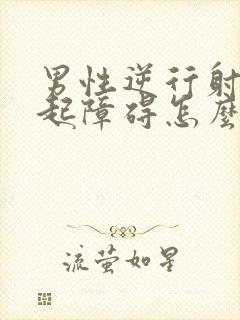 男性逆行射
起障碍怎麼
流萤如星